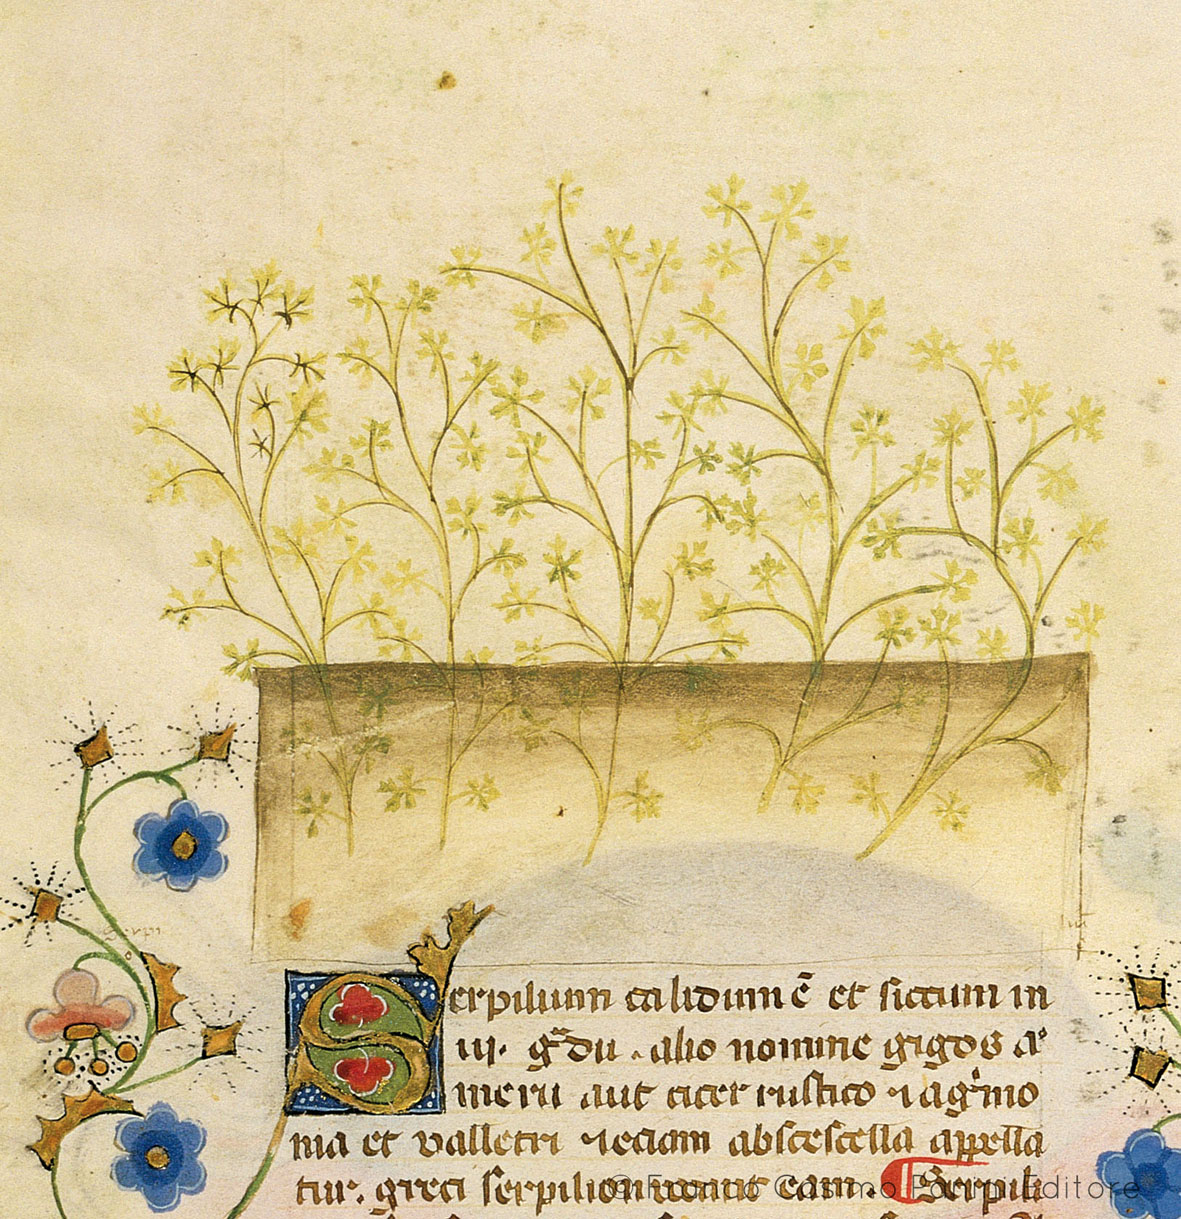 Serpillum calidum ē et siccum in
iij. gᵃdu . alio nomine gigos aᵒ
meru aut citer rustico ⁊ agⁱmo
nia et valletri ⁊ eciam abscescella appella
tur. greci serpilion uocant eam . ¶ Serpili
© Franco Cosimo Panini Editore